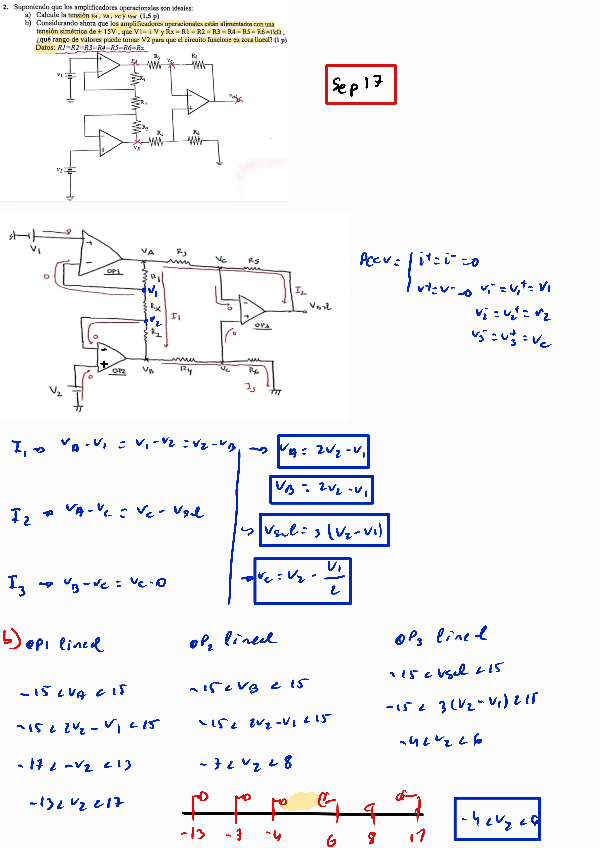 2. Suponiendo que los amplificadores operacionales son ideales:
a) Calcule la tensión VA, VB, VC y Vsal (1,5 p)
b) Considerando ahora que los amplificadores operacionales están alimentados con una
tensión simétrica de ± 15V, que V1= 1 V y Rx = R1 = R2 = R3 = R4 = R5 = R6 =1kΩ,
¿qué rango de valores puede tomar V2 para que el circuito funcione en zona lineal? (1 p)
Datos: R1=R2=R3=R4=R5=R6=Rx
Sep 17
V1
VA
R3
VC
R5
OP1
R1
V1
RX
I1
V2
R2
I2
Vsal
OP3
OP2
VB
R4
VC
R6
I3
V2
i+ = i- = 0
V+ = V- → V1- = V1+ = V1
V2- = V2+ = V2
V3- = V3+ = VC
I1 → VA - V1 = V1 - V2 = V2 - VB → VA = 2V2 - V1
VB = 2V2 - V1
I2 → VA - VC = VC - Vsal → Vsal = 3(V2 - V1)
I3 → VB - VC = VC - 0 → VC = V2 - V1/2
b) OP1 lineal
OP2 lineal
OP3 lineal
-15 < VA < 15
-15 < VB < 15
-15 < Vsal < 15
-15 < 2V2 - V1 < 15
-15 < 2V2 - V1 < 15
-15 < 3(V2 - V1) < 15
-17 < -V2 < 13
-7 < V2 < 8
-4 < V2 < 6
-13 < V2 < 17
-13 -7 -4 6 8 17
-4 < V2 < 6